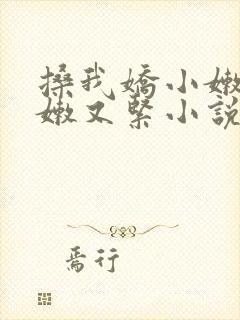 搡我嬌小嫩
嫩又緊小說
焉行